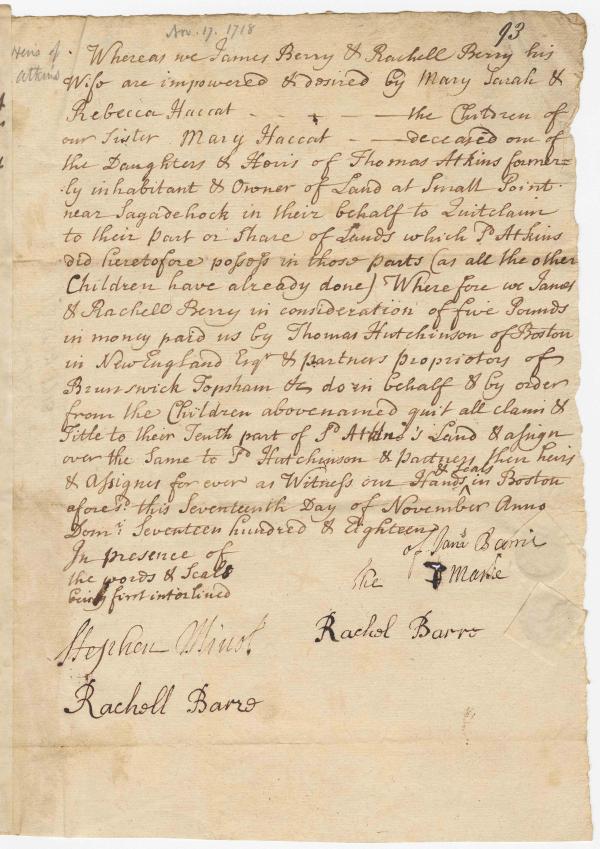 Nov. 17. 1718
93
Heirs of
Atkins
Whereas we James Berry & Rachell Berry his
Wife are impowered & desired by Mary Sarah &
Rebecca Haccat - - - - - the Children of
our Sister Mary Haccat - - deceased one of
the Daughters & Heirs of Thomas Atkins former=
ly inhabitant & Owner of Land at Small Point
near Sagadehock in their behalf to Quitclaim
to their Part or Share of Lands which Sd Atkins
did heretofore possess in those parts (as all the other
Children have already done) Where fore we James
& Rachell Berry in consideration of five Pounds
in money paid us by Thomas Hutchinson of Boston
in New England Esqr & partners proprietors of
Brunswick Topsham &c do in behalf & by order
from the Children abovenamed quit all claim &
Title to their Tenth part of Sd Atkins's Land & assign
over the Same to Sd Hutchinson & Partners their heirs
& Seals
& Assignes for ever as Witness our Hands in Boston
aforesd this Seventeenth Day of November Anno
Domi Seventeen hundred & Eighteen
In presence of
the words & Seals
being first interlined
of James Barrie
the marke
Stephen Minot
Rachel Barre
Rachell Barre